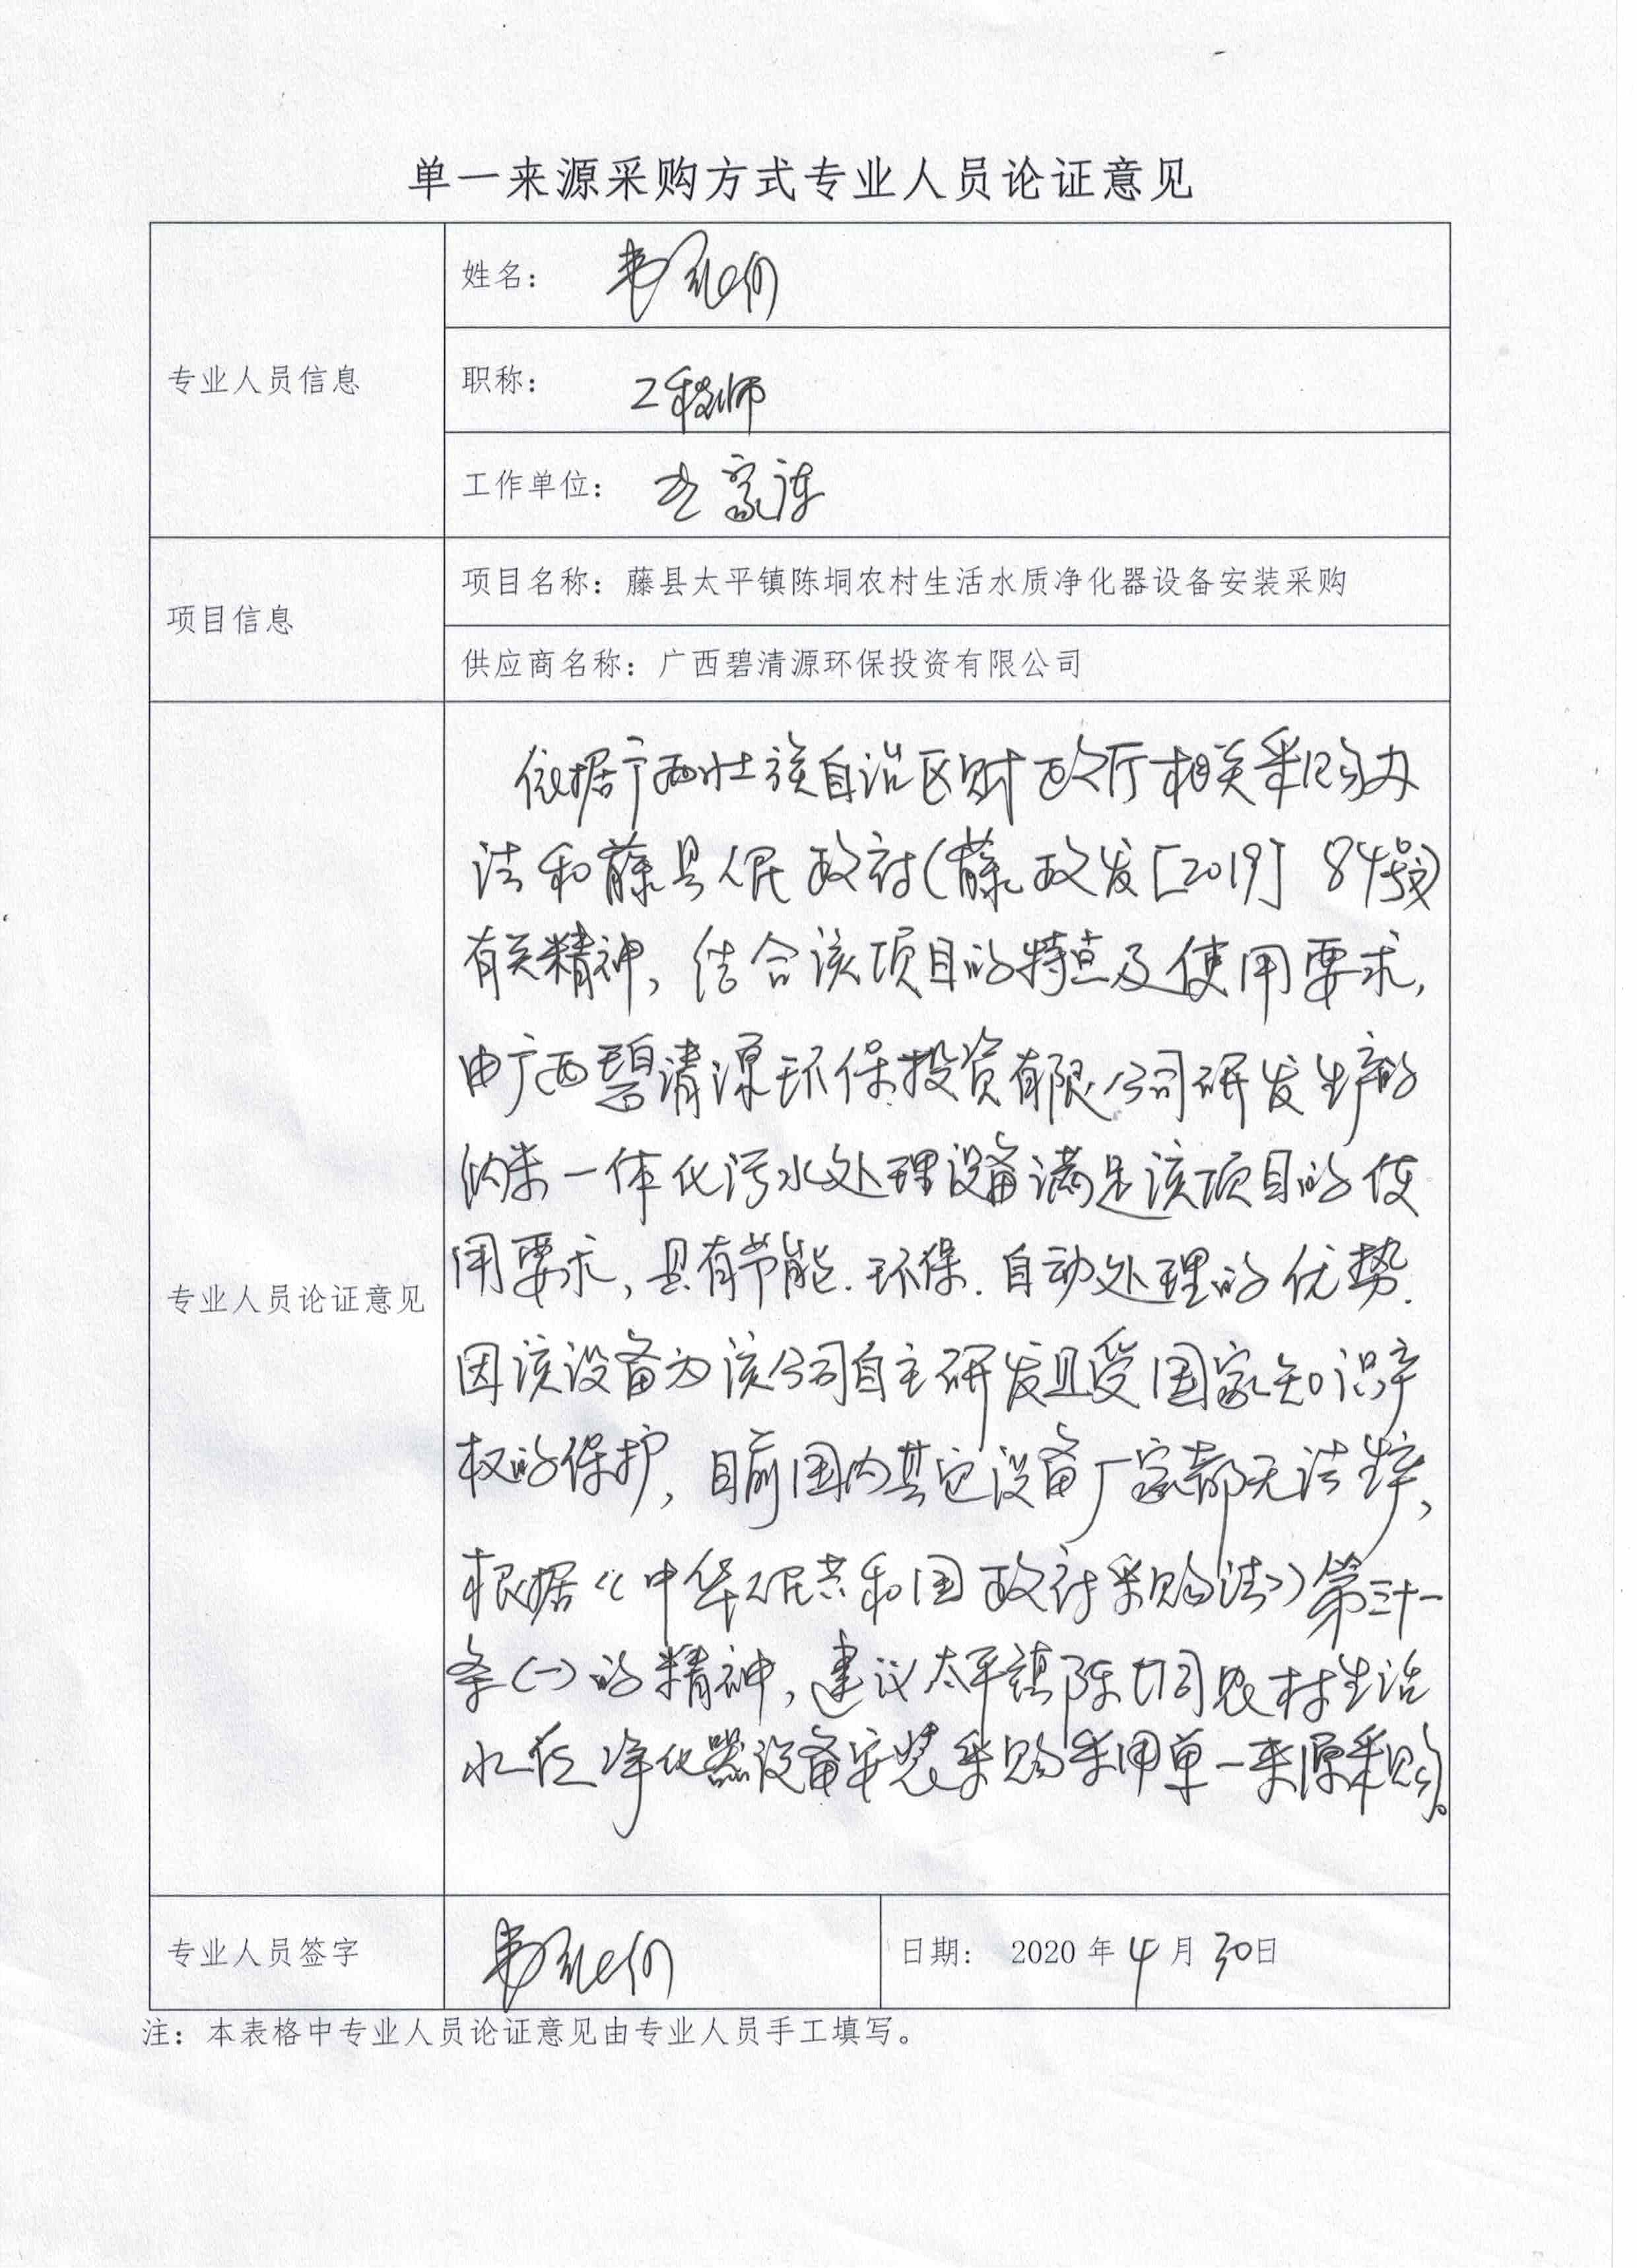 单一来源采购方式专业人员论证意见
专业人员信息
姓名：
职称： 工程师
工作单位：
项目信息
项目名称：藤县太平镇陈垌农村生活水质净化器设备安装采购
供应商名称：广西碧清源环保投资有限公司
专业人员论证意见
依据广西壮族自治区财政厅相关采购办
法和藤县人民政府（藤政发［2019］84号文）
有关精神，结合该项目的特点及使用要求，
由广西碧清源环保投资有限公司研发生产的
纳米一体化污水处理设备满足该项目的使
用要求，具有节能．环保．自动处理的优势．
因该设备为该公司自主研发且受国家知识产
权的保护，目前国内其它设备厂家都无法生产，
根据《中华人民共和国政府采购法》第三十一
条（一）的精神，建议太平镇陈垌农村生活
水质净化器设备安装采购采用单一来源采购。
专业人员签字
日期： 2020 年 4 月 30日
注：本表格中专业人员论证意见由专业人员手工填写。